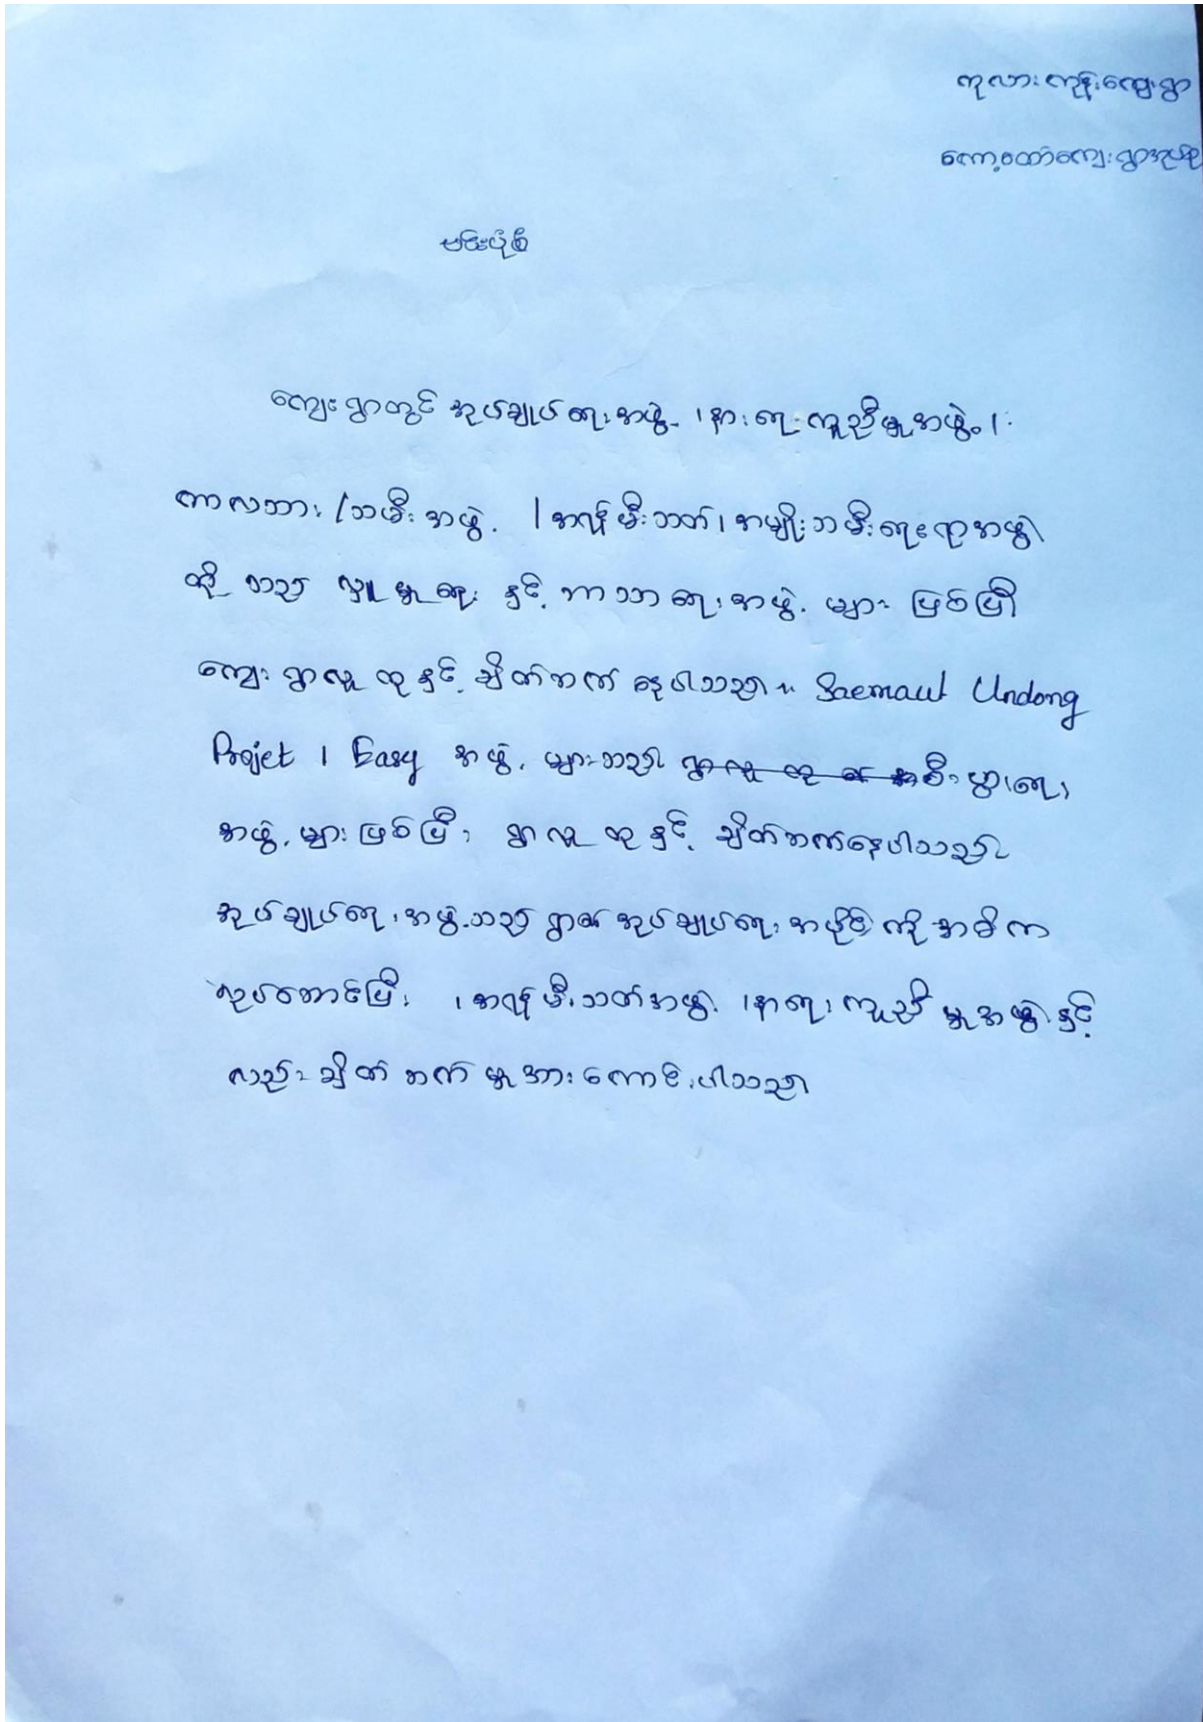 ကုလားကုန်းကျေးရွာ
ကော့စထာကျေးရွာအုပ်စု
ဗင်းပုံစံ
ကျေးရွာတွင် အုပ်ချုပ်ရေးအဖွဲ့ ၊နာရေးကူညီမှုအဖွဲ့၊
ကာလသား/သမီးအဖွဲ့ ၊အရန်မီးသတ်၊အမျိုးသမီးရေးရာအဖွဲ့
တို့သည် လူမှုရေး နှင့် ဘာသာရေးအဖွဲ့ များ ဖြစ်ပြီး
ကျေးရွာလူထုနှင့် ချိတ်ဆက် နေပါသည်။ Saemaul Undong
Projet ၊ Easy အဖွဲ့ များသည် စီးပွားရေး
အဖွဲ့များဖြစ်ပြီး ရွာလူထုနှင့် ချိတ်ဆက်နေပါသည်။
အုပ်ချုပ်ရေးအဖွဲ့သည် ရွာ၏ အုပ်ချုပ်ရေးအပိုင်းကိုအဓိက
လုပ်ဆောင်ပြီး ၊အရန်မီးသတ်အဖွဲ့ ၊နာရေးကူညီမှုအဖွဲ့နှင့်
လည်း ချိတ်ဆက်မှုအားကောင်းပါသည်။